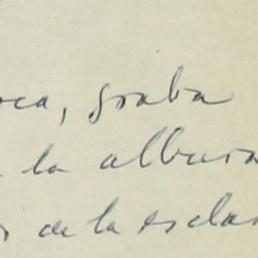 oca, graba
la albura
de la escla